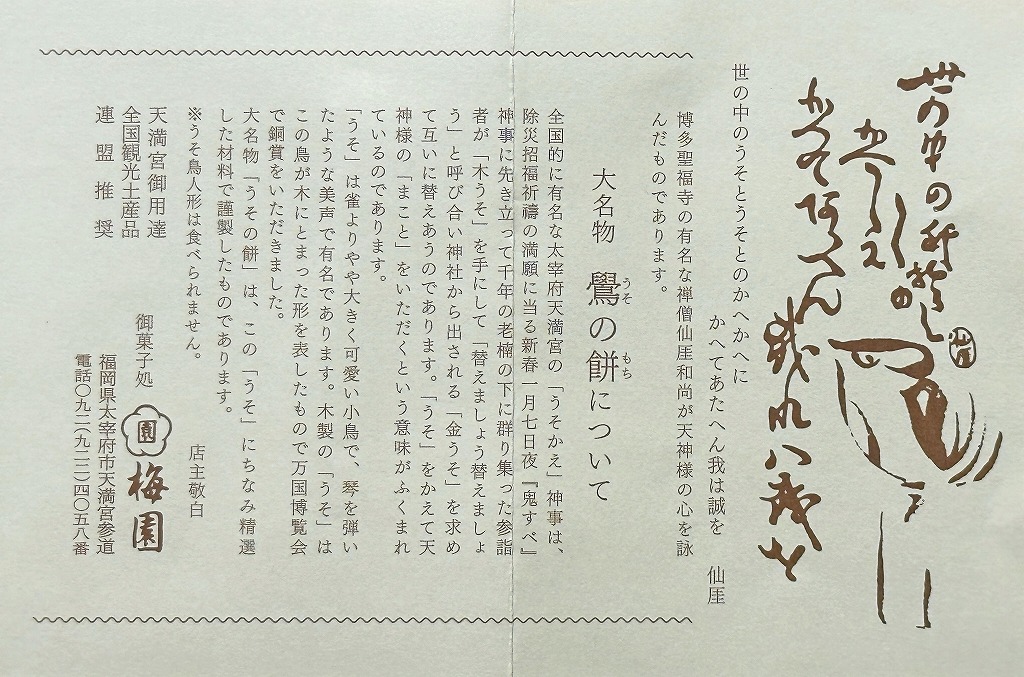 世の中のうそとうそとのかへかへに
かへてあたへん我は誠を　仙厓
博多聖福寺の有名な禅僧仙厓和尚が天神様の心を詠
んだものであります。
大名物　鷽の餅について
うそ
もち
全国的に有名な太宰府天満宮の「うそかえ」神事は、
除災招福祈禱の満願に当る新春一月七日夜『鬼すべ』
神事に先き立って千年の老楠の下に群り集った参詣
者が「木うそ」を手にして「替えましょう替えましょ
う」と呼び合い神社から出される「金うそ」を求め
て互いに替えあうのであります。「うそ」をかえて天
神様の「まこと」をいただくという意味がふくまれ
ているのであります。
「うそ」は雀よりやや大きく可愛い小鳥で、琴を弾い
たような美声で有名であります。木製の「うそ」は
この鳥が木にとまった形を表したもので万国博覧会
で銅賞をいただきました。
大名物「うその餅」は、この「うそ」にちなみ精選
した材料で謹製したものであります。
※うそ鳥人形は食べられません。
店主敬白
天満宮御用達
全国観光土産品
連盟推奨
御菓子処
園
梅園
福岡県太宰府市天満宮参道
電話〇九二(九二二)四〇五八番